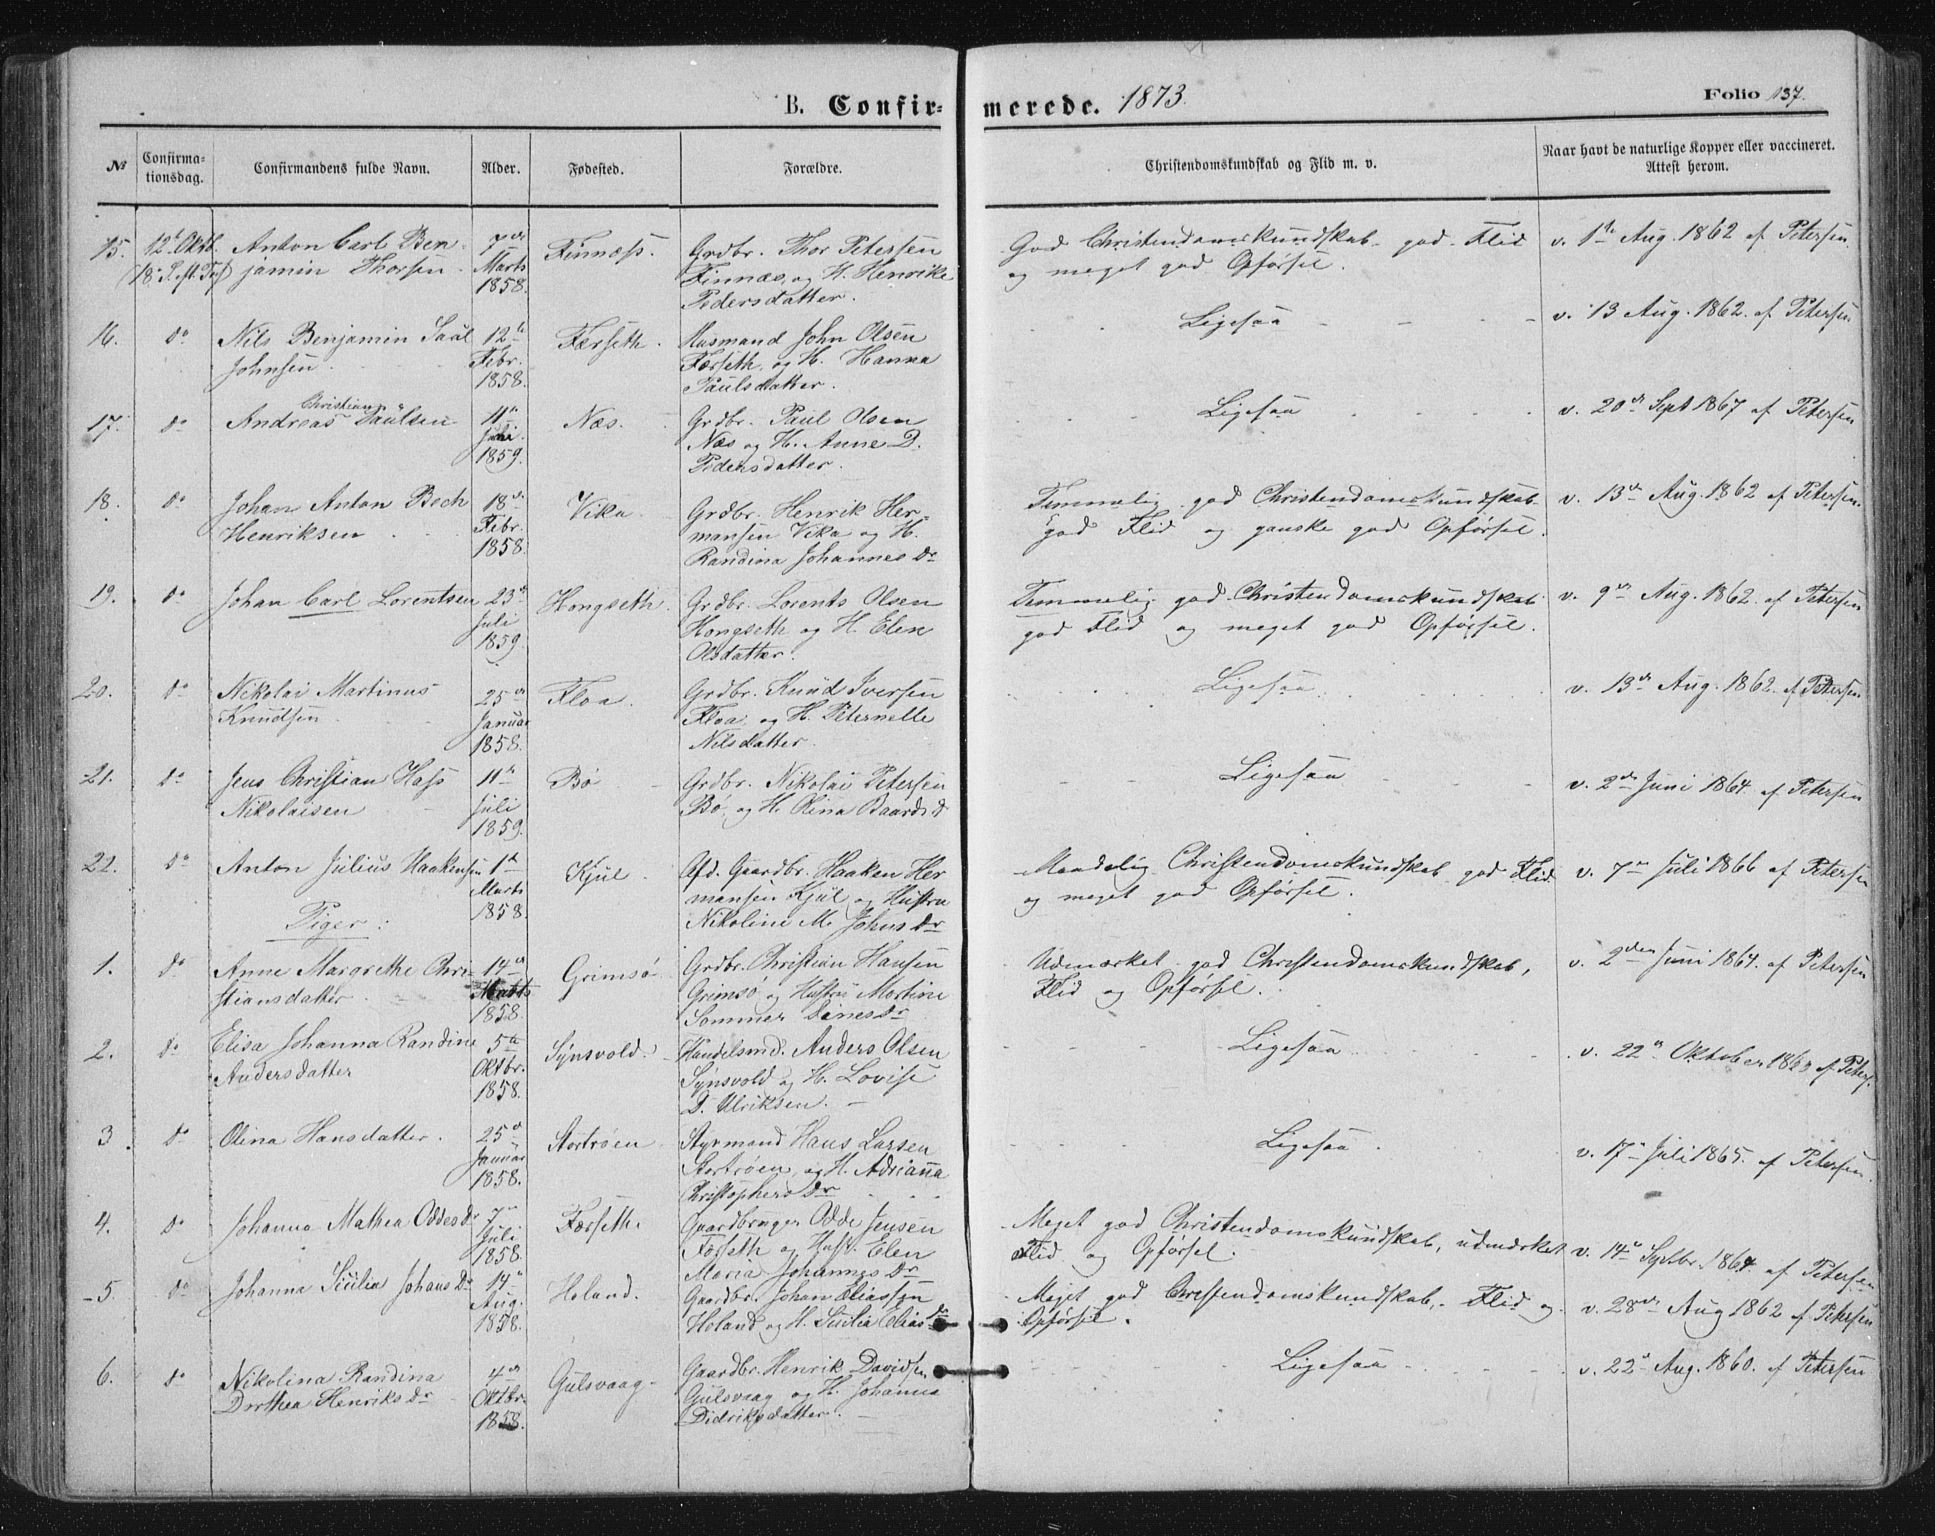 B. Confirmerede. 1873.
Folio 137.
№ Confirmationsdag. Confirmandens fulde Navn. Alder. Fødested. Forældre. Christendomskundskab og Flid m. v. Naar havt de naturlige Kopper eller vaccineret. Attest herom.
15. 12te Oktb. Anton Carl Ben- 7de Finnæss. Grdbr. Thor Petersen God Christendomskundskab god Flid v. 1te Aug. 1862 af Petersen.
jamin Thorsen. Marts Finnæs, og H. Henrike og meget god Opførsel.
1858. Pedersdatter.
16. do Nils Benjamin Saal 12te Færseth. Husmand John Olsen Ligesaa v. 13 Aug. 1862. af Petersen
Johnsen. Febr. Færseth, og H. Hanna
1858. Paulsdatter.
17. do Andreas Christian Paulsen 11te Næs. Grdbr. Paul Olsen Ligesaa v. 20de Sept 1867 af Petersen
Juli Næs og H. Anne D.
1859. Pedersdatter.
18. do Johan Anton Bech 18de Vika. Grdbr. Henrik Her- Temmelig god Christendomskundskab v. 13de Aug. 1862 af Petersen.
Henriksen Febr. mansen Vika og H. god Flid og ganske god Opførsel.
1858. Randina Johannes Dr
19. do Johan Carl Lorentsen 23de Hongseth. Grdbr. Lorents Olsen Temmelig god Christendomskundskab v. 9de Aug. 1862. af Petersen
Juli Hongseth og H. Elen god Flid og meget god Opførsel.
1859. Olsdatter.
20. do Nikolai Martinus 25de Floa. Grdbr. Knud Iversen Ligesaa v. 13de Aug. 1862. af Petersen
Knudsen Januar Floa, og H. Peternelle
1858. Nilsdatter.
21. do Jens Christian Hass 11te Bø Grdbr. Nikolai Petersen Ligesaa v. 2den Juni 1864. af Petersen
Nikolaisen Juli Bø, og H. Olina Baards d
1859.
22. do Anton Julius Haakensen 1te Kjul Afd. Gaardbr. Haaken Her Maadelig Christendomskundskab god Flid v. 7de Juli 1866 af Petersen
Marts mansen Kjul og Hustru og meget god Opførsel.
1858. Nikoline M. Johns Dr
Piger:
1. do Anne Margrethe Chri- 14de Grimsø Grdbr. Christian Hansen Udmærket god Christendomskundskab, v. 2den Juni 1864. af Petersen
stiansdatter. Marts Grimsø og Hustru Martine Flid og Opførsel.
1858. Sommer Dines Dr
2. do Elisa Johanna Randine 5te Synsvold. Handelsmd. Anders Olsen Ligesaa v. 22de Oktober 1860 af Peters.
Andersdatter Oktbr. Synsvold og H. Lovise
1858. D. Ulriksen.
3 do Olina Hansdatter. 25de Stortrøen Styrmand Hans Larsen Ligesaa v. 17de Juli 1865. af Petersen.
Januar Stortrøen, og H. Adrianna
1858. Christophers Dr
4. do Johanna Mathea Oddes Dr 7de Færseth. Gaardbruger Odde Jensen Meget god Christendomskundskab, udmærket v. 14de Septbr. 1864. af Petersen
Juli Færseth og Hustr. Elen Flid og Opførsel.
1858. Maria Johannes Dr
5. do Johanna Sicilia Johans Dr 14de Holand. Gaardbr. Johan Eliassen Meget god Christendomskundskab, Flid og v. 28de Aug 1862 af Petersen
Aug. Holand og H. Sicilia Elias Dr Opførsel.
1858.
6. do Nikolina Randina 4de Gulsvaag Gaardbr. Henrik Davidsen Ligesaa v. 22de Aug. 1860. af Petersen
Dorthea Henriks Dr Oktbr. Gulsvaag og H. Johanna
1858. Didriksdatter.